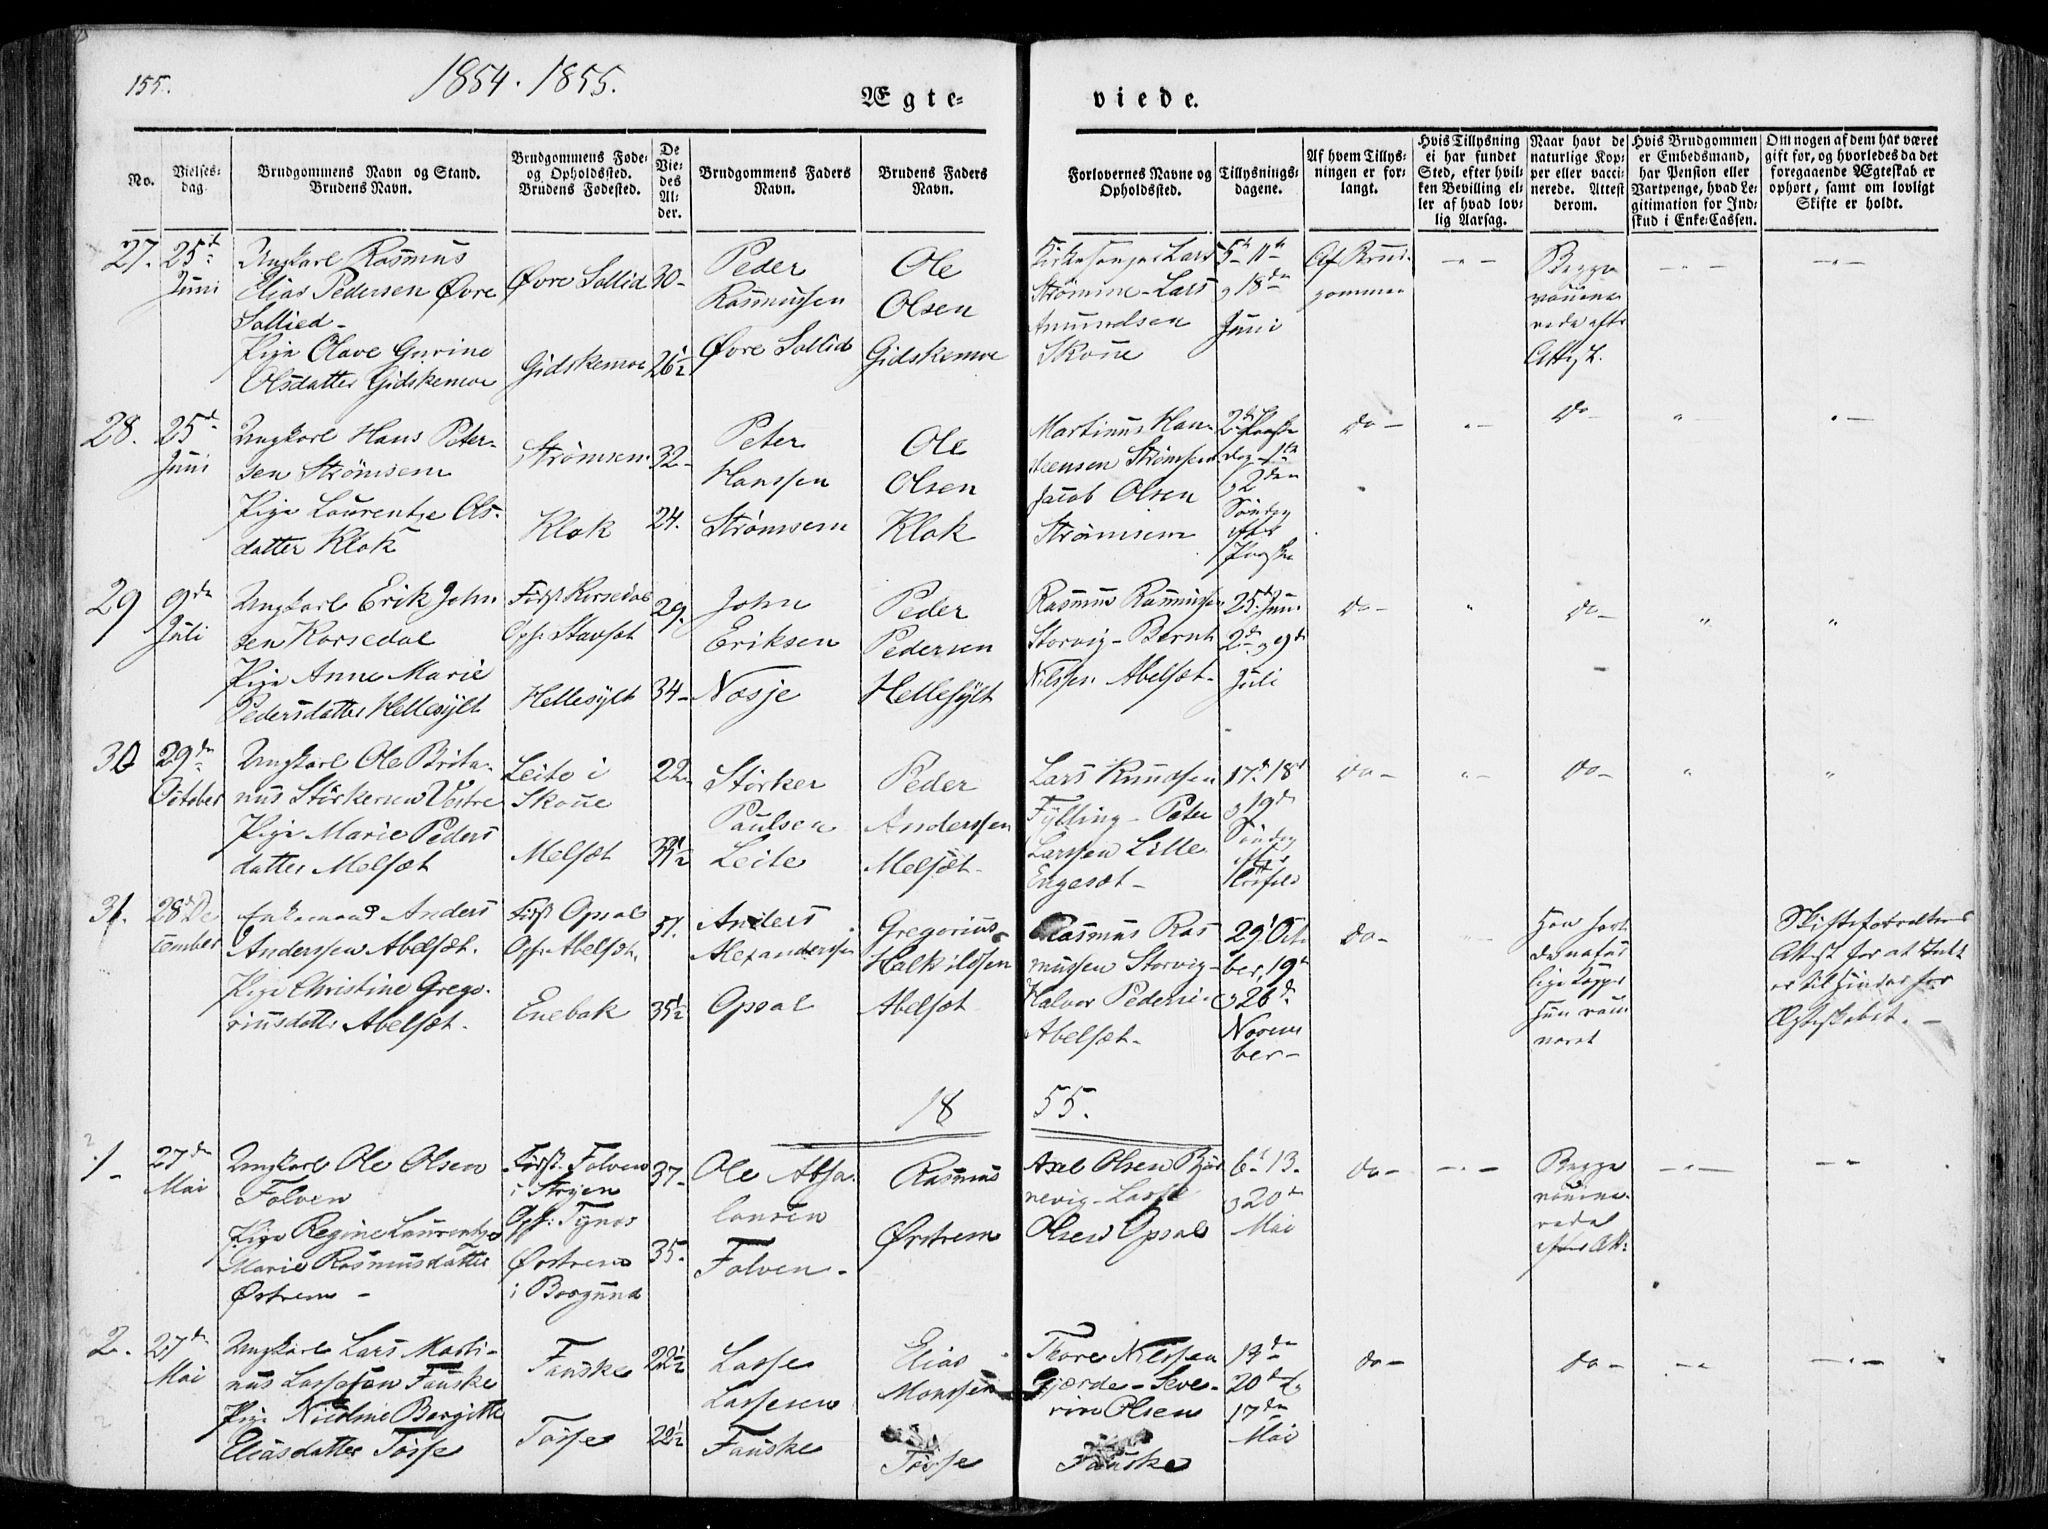 155.
1854. 1855.
Ægte-
viede.
No.
Vielses-
dag.
Brudgommens Navn og Stand.
Brudens Navn.
Brudgommens Føde-
og Opholdssted.
Brudens Fødested.
De
Vie-
des
Al-
der.
Brudgommens Faders
Navn.
Brudens Faders
Navn.
Forlovernes Navne og
Opholdssted.
Tillysnings-
dagene.
Af hvem Tillys-
ningen er for-
langt.
Hvis Tillysning
ei har fundet
Sted, efter hvil-
ken Bevilling el-
ler af hvad lov-
lig Aarsag.
Naar havt de
naturlige Kop-
per eller vacci-
nerede. Attest
derom.
Hvis Brudgommen
er Embedsmand,
har Pension eller
Vartpenge, hvad Le-
gitimation for Ind-
skud i Enke-Cassen.
Om nogen af dem har været
gift før, og hvorledes da det
foregaaende Ægteskab er
ophørt, samt om lovligt
Skifte er holdt.
27.
25d
Juni
Ungkarl Rasmus
Elias Pedersen Øvre
Sollied-
Pige Olave Gurine
Olsdatter Gidskemoe
Øvre Sollid
Gidskemoe
30-
26½
Peder
Rasmussen
Øvre Sollid
Ole
Olsen
Gidskemoe
Kirkesanger Lars
Strømme-Lars
Amundsen
Skoue
5te 11te
og 18de
Juni
Af Brud-
gommen
Begge
vaccine-
rede efter
Att; L.
28.
25d
Juni
Ungkarl Hans Peter-
sen Strømsem
Pige Laurentse Ols-
datter Klok
Strømsem
Klok
32-
24.
Peter
Hanssen
Strømsem
Ole
Olsen
Klok
Martinus Han-
steensen Strømsem
Jacob Olsen
Strømsem
2de Paaske
dag-1te
og 2den
Søndag
efter
Paaske
do-
do-
29
9de
Juli
Ungkarl Erik John
sen Korsedal
Pige Anne Marie
Pedersdatter Hellesylt
Født Korsedal
Oph: Stavset
Hellesylt
29.
34-
John
Eriksen
Nosje
Peder
Pedersen
Hellesylt
Rasmus Rasmussen
Storvig-Bernt
Nilssen Abelsæt-
25de Juni
2de og 9de
Juli
do-
do-
30
29de
October
Ungkarl Ole Brita-
nus Størkersen Vestre
Pige Marie Peders
datter Melsæt
Leite i
Skoue
Melsæt
22-
Størker
Paulsen
Leite
Peder
Anderssen
Melsæt-
Lars Knudsen
Fylling-Peter
Larssen Lille
Engesæt-
17d 18d
og 19de
Søndag
efter
Trefold
do-
do-
31.
28de De
cember
Enkemand Anders
Anderssen Abelsæt.
Pige Christine Grego-
riusdatter Abelsæt.
Født Opsal
Oph: Abelsæt.
Enebak
51.
35½
Anders
Alexandersen
Opsal
Gregorius
Halkildsen
Abelsæt
Rasmus Ras
mussen Storvig-
Halvor Pedersen
Abelsæt-
29d Octo
ber, 19d
og 26de
Novem
ber-
do-
Han havt
de natur
lige Kopper
Hun vaci
neret
Skifteforvalterens
Attest for at Intet
er til Hinder for
Ægteskabet.-
18
55.
1-
27de
Mai
Ungkarl Ole Olsen
Folven
Pige Regine Laurentse
Marie Rasmusdatter
Ørstrem-
Født Folven
i Stryen
Oph: Tynæs
Ørstrem
i Borgund
37-
35-
Ole Absa-
lonsen
Folven-
Rasmus
Ørstrem
Axel Olsen Bjør
nevig-Lasse
Olsen Opsal
6d 13-
og 20d
Mai
do-
Begge
vaccine-
rede
efter Att:
2.
27de
Mai
Ungkarl Lars Marti-
nus Lassesen Fauske
Pige Nicoline Bergitte
Eliasdatter Tøsse
Fauske
Tøsse
22½
22½
Lasse
Lassesen
Fauske
Elias
Monssen
Tøsse
Thore Nilssen
Gjærde-Seve-
rin Olsen
Fauske
13de
20de og
17de
Mai
do-
do-